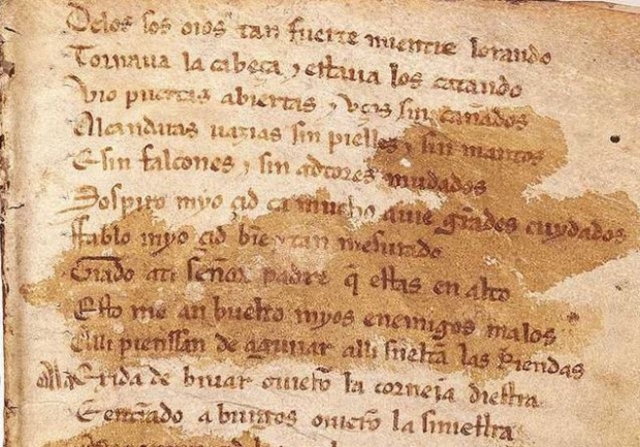 Delos sos oios tan fuerte mientre lorando
Tornaua la cabeça ⁊ estaua los catando
Vio puertas abiertas ⁊ vços sin cañados
Alcandaras uazias sin pielles ⁊ sin mantos
E sin falcones ⁊ sin adtores mudados
Sospiro myo çid ca mucho auie grãdes cuydados
ffablo myo çid biẽ ⁊ tan mesurado
Grado ati señor padre q̃ estas en alto
Esto me an buelto myos enemigos malos
Alli pienssan de aguiiar alli sueltã las Riendas
Ala Exida de biuar ouierõ la corneia diestra
E entrãdo a burgos ouierõ la siniestra